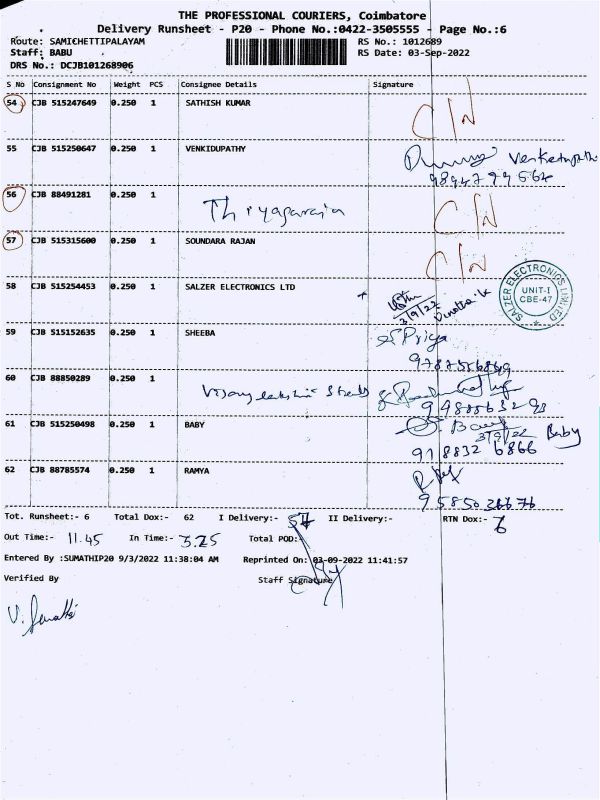 THE PROFESSIONAL COURIERS, Coimbatore
Delivery Runsheet - P20 - Phone No.:0422-3505555 - Page No.:6
Route: SAMICHETTIPALAYAM RS No.: 1012689
Staff: BABU RS Date: 03-Sep-2022
DRS No.: DCJB101268906
S No Consignment No Weight PCS Consignee Details Signature
54 CJB 515247649 0.250 1 SATHISH KUMAR C/N
55 CJB 515250647 0.250 1 VENKIDUPATHY
56 CJB 88491281 0.250 1 Thiyagaraja C/N
57 CJB 515315600 0.250 1 SOUNDARA RAJAN C/N
58 CJB 515254453 0.250 1 SALZER ELECTRONICS LTD 3/9/22
SALZER ELECTRONICS LIMITED
UNIT-I
CBE-47
59 CJB 515152635 0.250 1 SHEEBA Priya
60 CJB 88850289 0.250 1
61 CJB 515250498 0.250 1 BABY 3/9/22 Baby
918832 6866
62 CJB 88785574 0.250 1 RAMYA
Tot. Runsheet:- 6 Total Dox:- 62 I Delivery:- II Delivery:- RTN Dox:- 6
Out Time:- 11.45 In Time:- 3.25 Total POD:-
Entered By :SUMATHIP20 9/3/2022 11:38:04 AM Reprinted On: 03-09-2022 11:41:57
Verified By Staff Signature